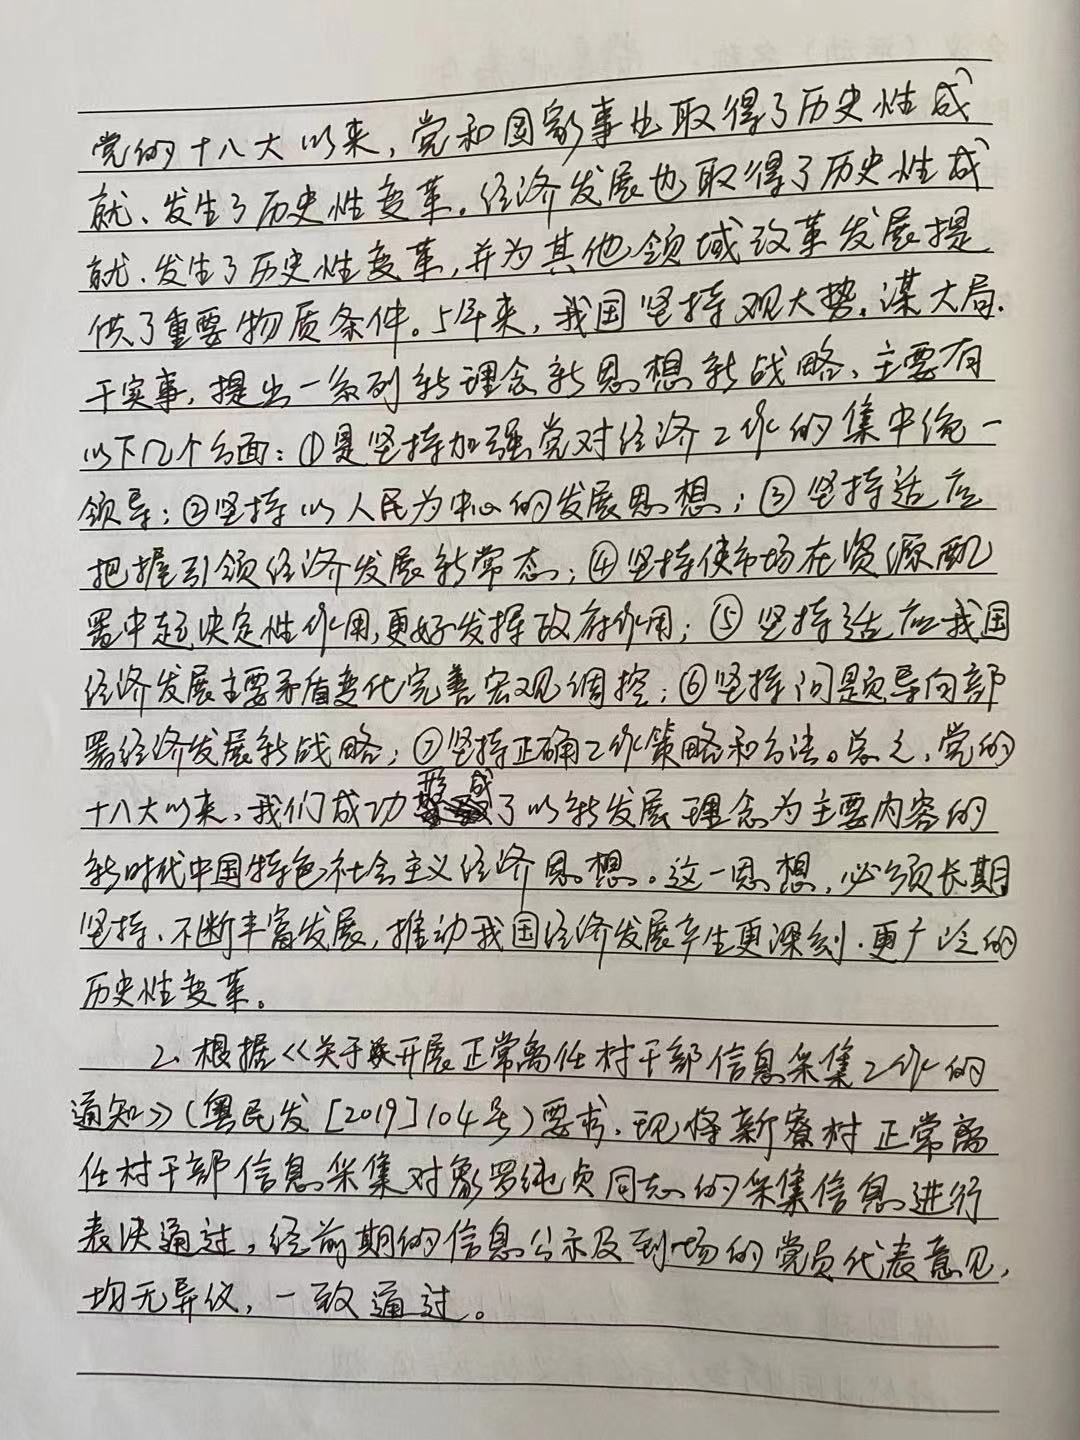 党的十八大以来，党和国家事也取得了历史性成
就、发生了历史性变革。经济发展也取得了历史性成
就、发生了历史性变革，并为其他领域改革发展提
供了重要物质条件。5年来，我国坚持观大势、谋大局、
干实事，提出一系列新理念新思想新战略、主要有
以下几个方面：①是坚持加强党对经济工作的集中统一
领导；②坚持以人民为中心的发展思想；③坚持适应
把握引领经济发展新常态；④坚持使市场在资源配
置中起决定性作用，更好发挥政府作用；⑤坚持适应我国
经济发展主要矛盾变化完善宏观调控；⑥坚持问题导向部
署经济发展新战略；⑦坚持正确工作策略和方法。总之，党的
十八大以来、我们成功形成了以新发展理念为主要内容的
新时代中国特色社会主义经济思想。这一思想，必须长期
坚持、不断丰富发展，推动我国经济发展产生更深刻、更广泛的
历史性变革。
2、根据《关于开展正常离任村干部信息采集工作的
通知》（粤民发［2019］104号）要求，现将新寮村正常离
任村干部信息采集对象罗纯贞同志的采集信息进行
表决通过，经前期的信息公示及到场的党员代表意见，
均无异仪，一致通过。